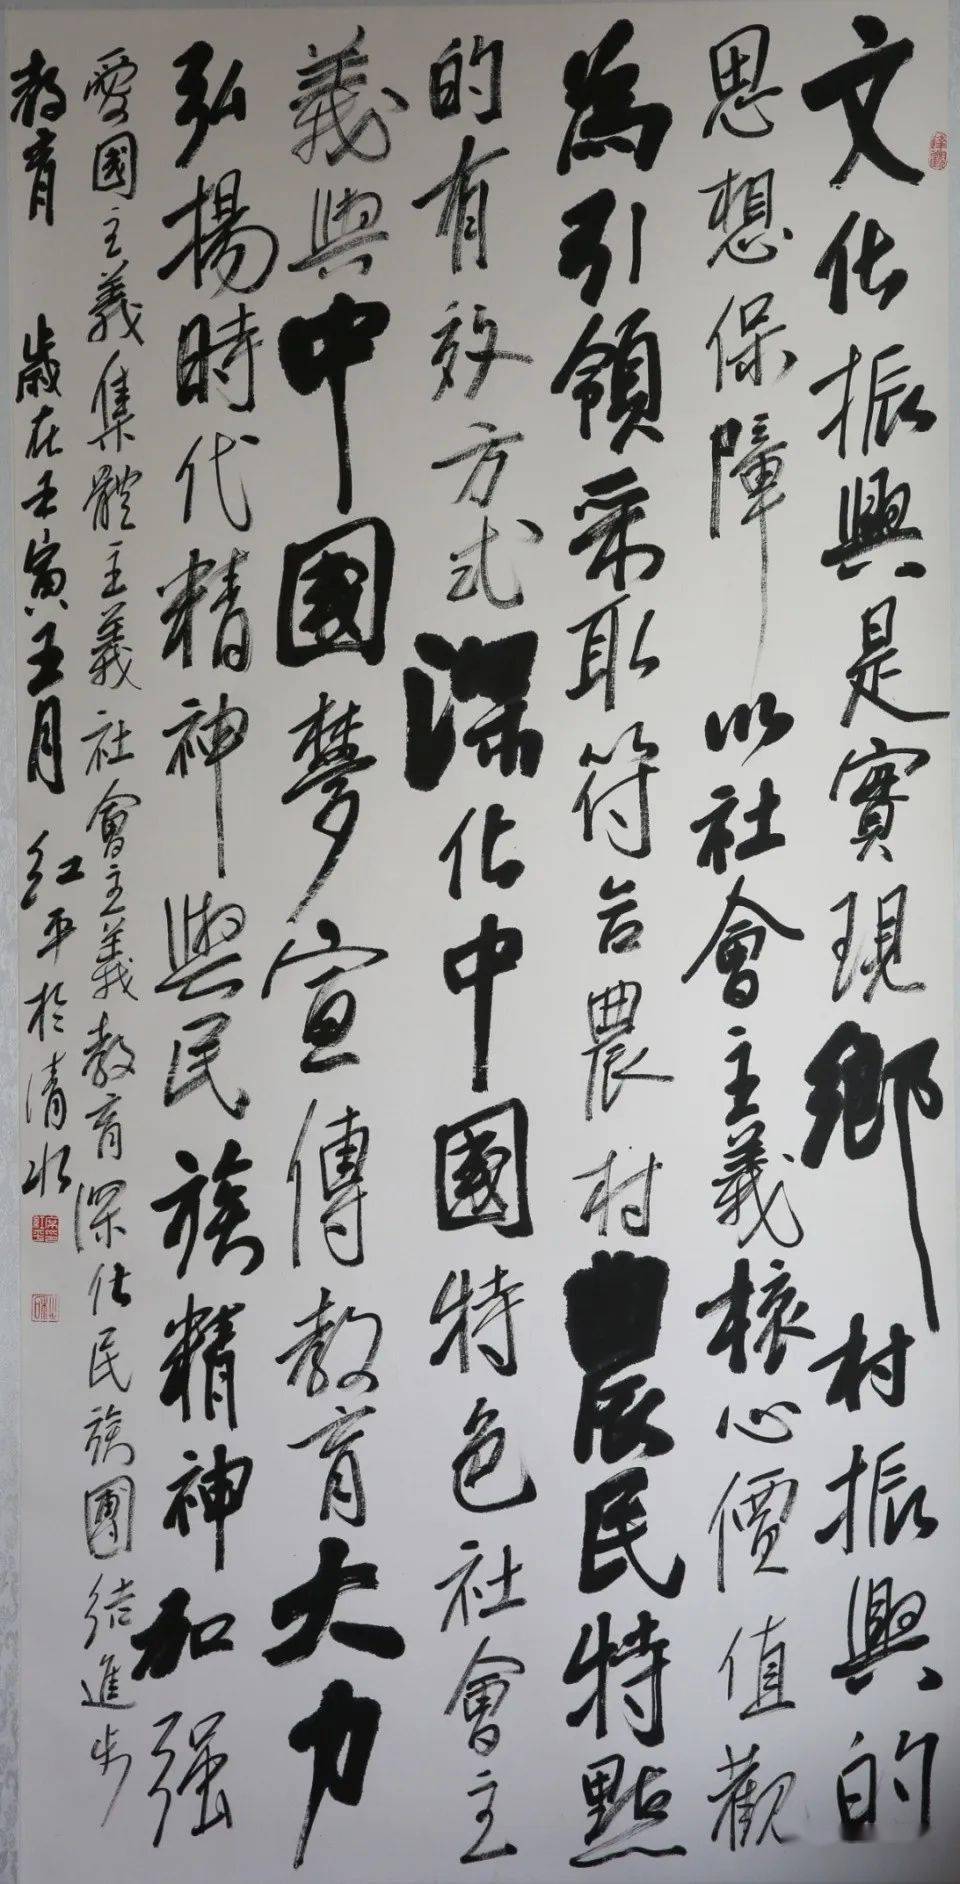 文化振興是實現鄉村振興的
思想保障以社會主義核心價值觀
為引領采取符合農村農民特點
的有效方式深化中國特色社會主
義與中國夢宣傳教育大力
弘揚時代精神與民族精神加强
愛國主義集體主義社會主義教育深化民族團结進步
教育 歲在壬寅五月 红平於清水